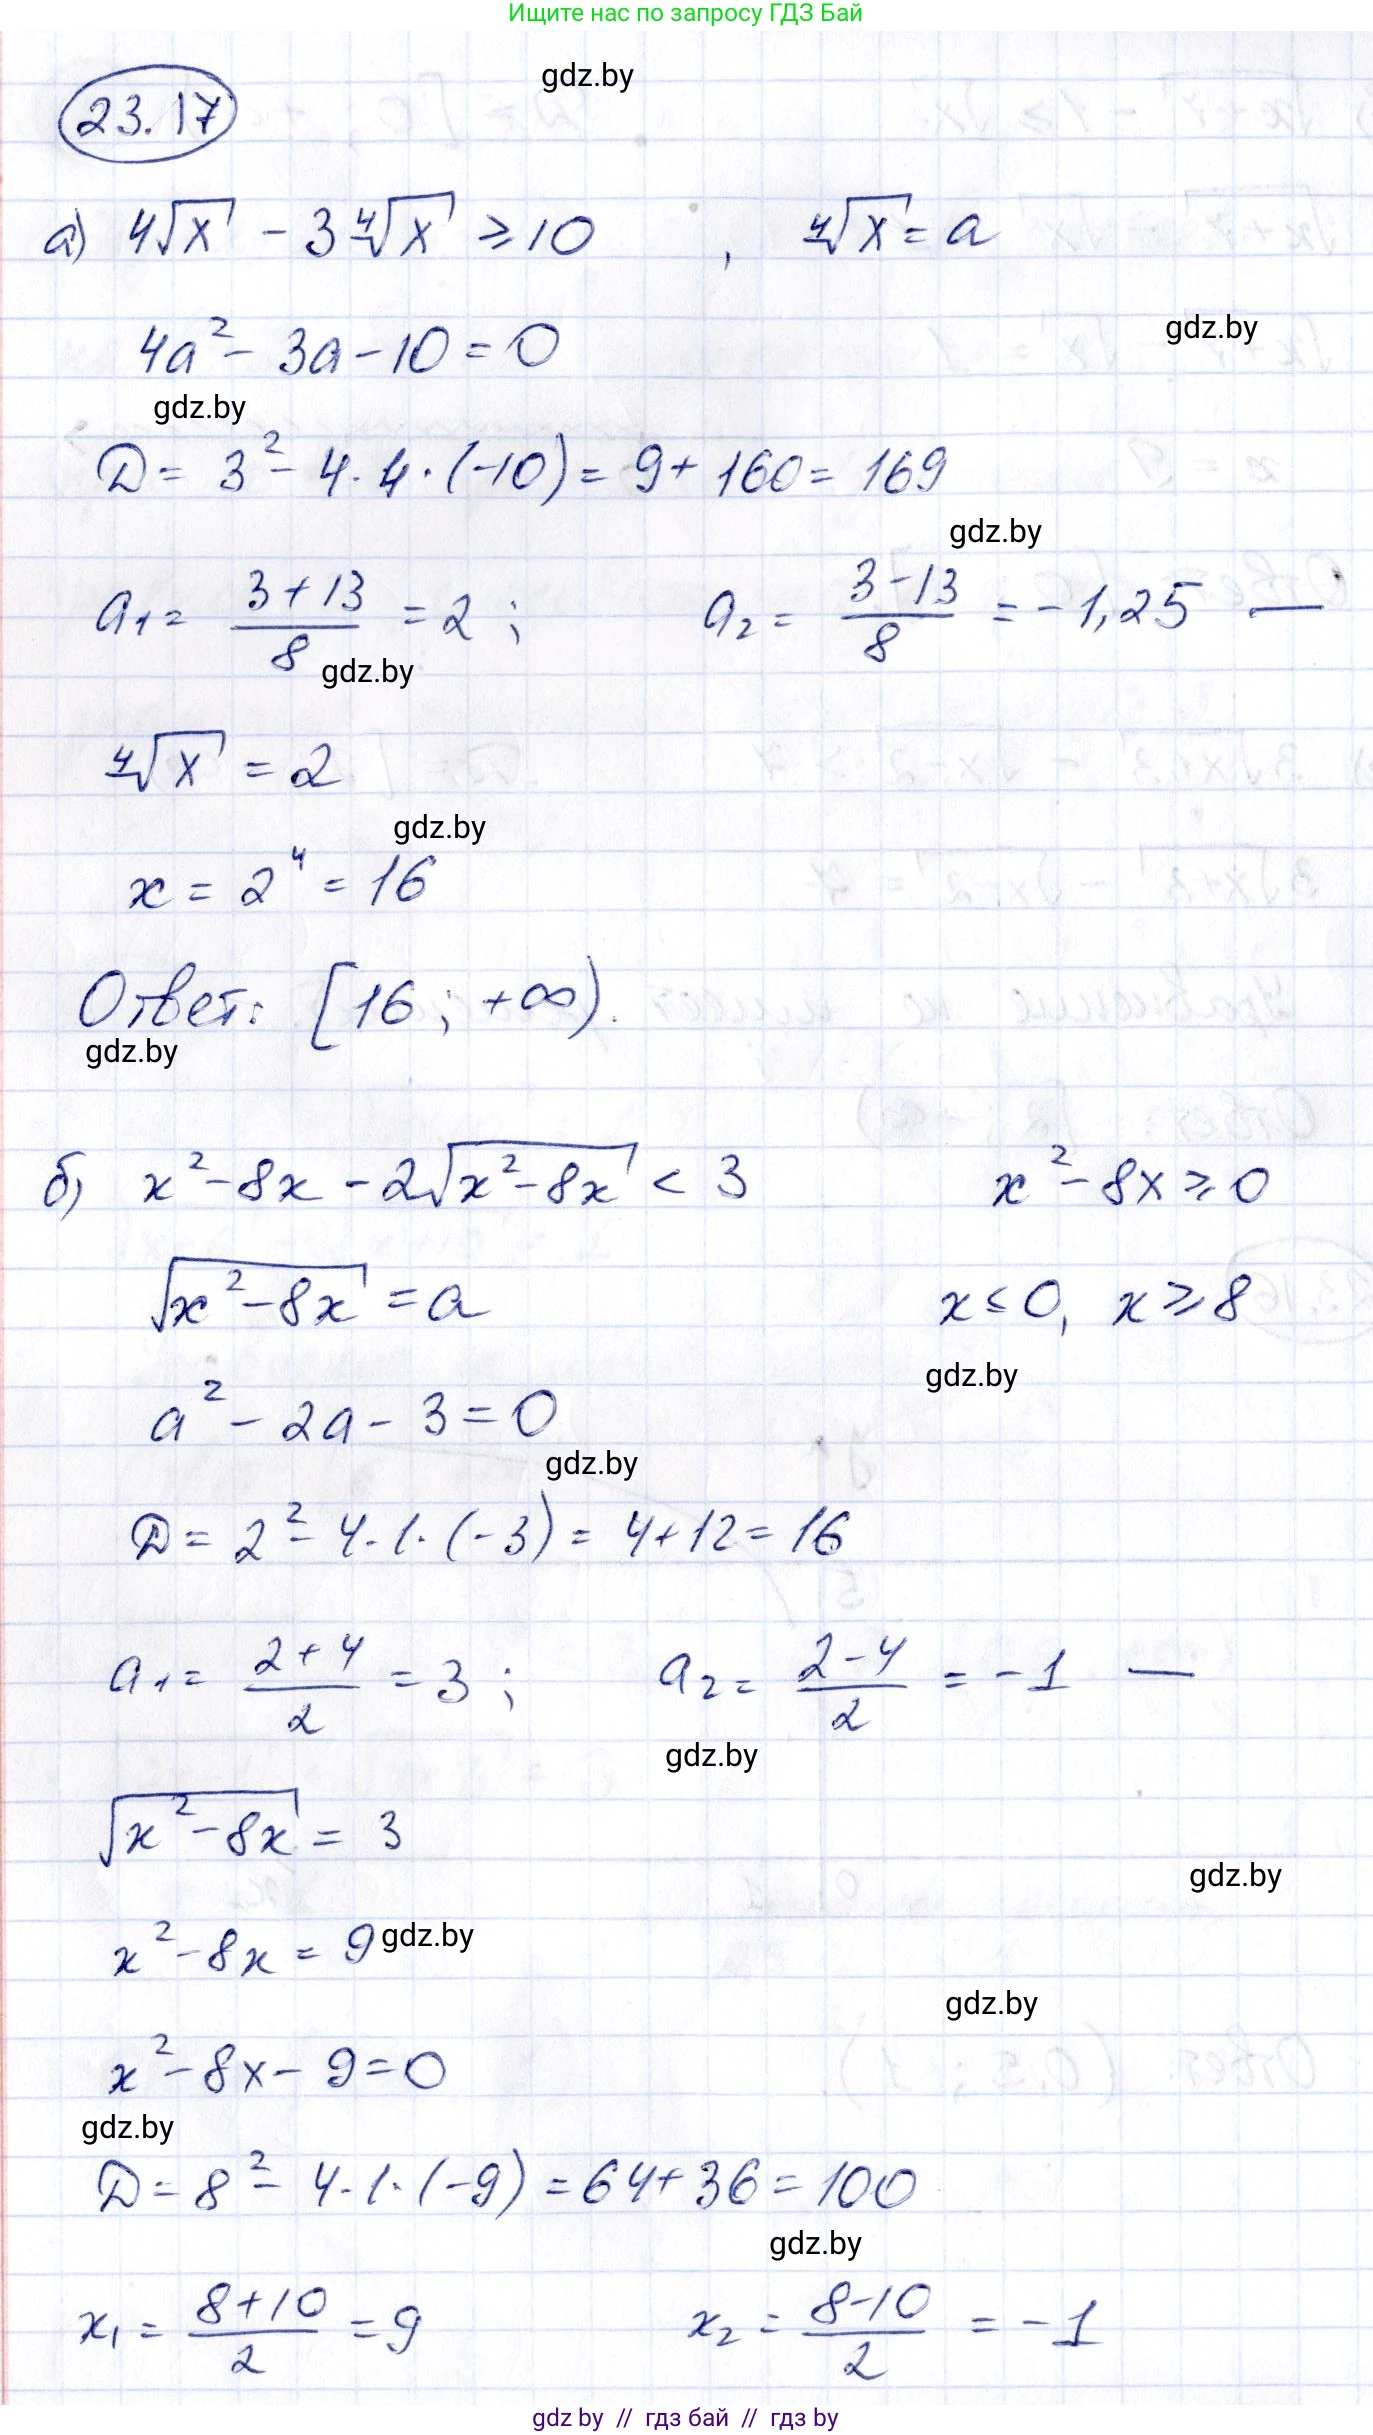 Ищите нас по запросу ГДЗ Бай
gdz.by
23.17
а) 4√x - 3∜x ≥ 10 , ∜x = a
gdz.by
4a² - 3a - 10 = 0
gdz.by
D = 3² - 4·4·(-10) = 9 + 160 = 169
gdz.by
a₁ = (3+13)/8 = 2; a₂ = (3-13)/8 = -1,25 —
gdz.by
∜x = 2
gdz.by
x = 2⁴ = 16
Ответ: [16; +∞).
gdz.by
б) x² - 8x - 2√(x² - 8x) < 3 x² - 8x ≥ 0
√(x² - 8x) = a x ≤ 0, x ≥ 8
gdz.by
a² - 2a - 3 = 0
gdz.by
D = 2² - 4·1·(-3) = 4 + 12 = 16
a₁ = (2+4)/2 = 3; a₂ = (2-4)/2 = -1 —
gdz.by
√(x² - 8x) = 3
gdz.by
x² - 8x = 9 gdz.by
gdz.by
x² - 8x - 9 = 0
gdz.by
D = 8² - 4·1·(-9) = 64 + 36 = 100
gdz.by
x₁ = (8+10)/2 = 9 x₂ = (8-10)/2 = -1
gdz by // гдз бай // гдз by